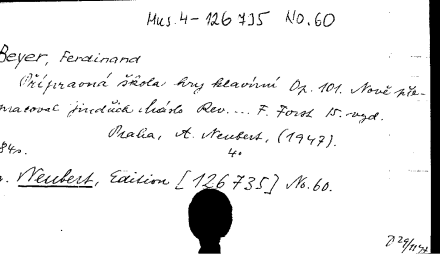 Mus. 4 - 126 735 No. 60
Beyer, Ferdinand
Přípravná škola hry klavírní Op. 101. Nově pře-
pracoval Jindřich Máslo Rev.... F. Forst 15. vyd.
Praha, A. Neubert, (1947).
84 s. 4°
Neubert, Edition [126 735] No. 60.